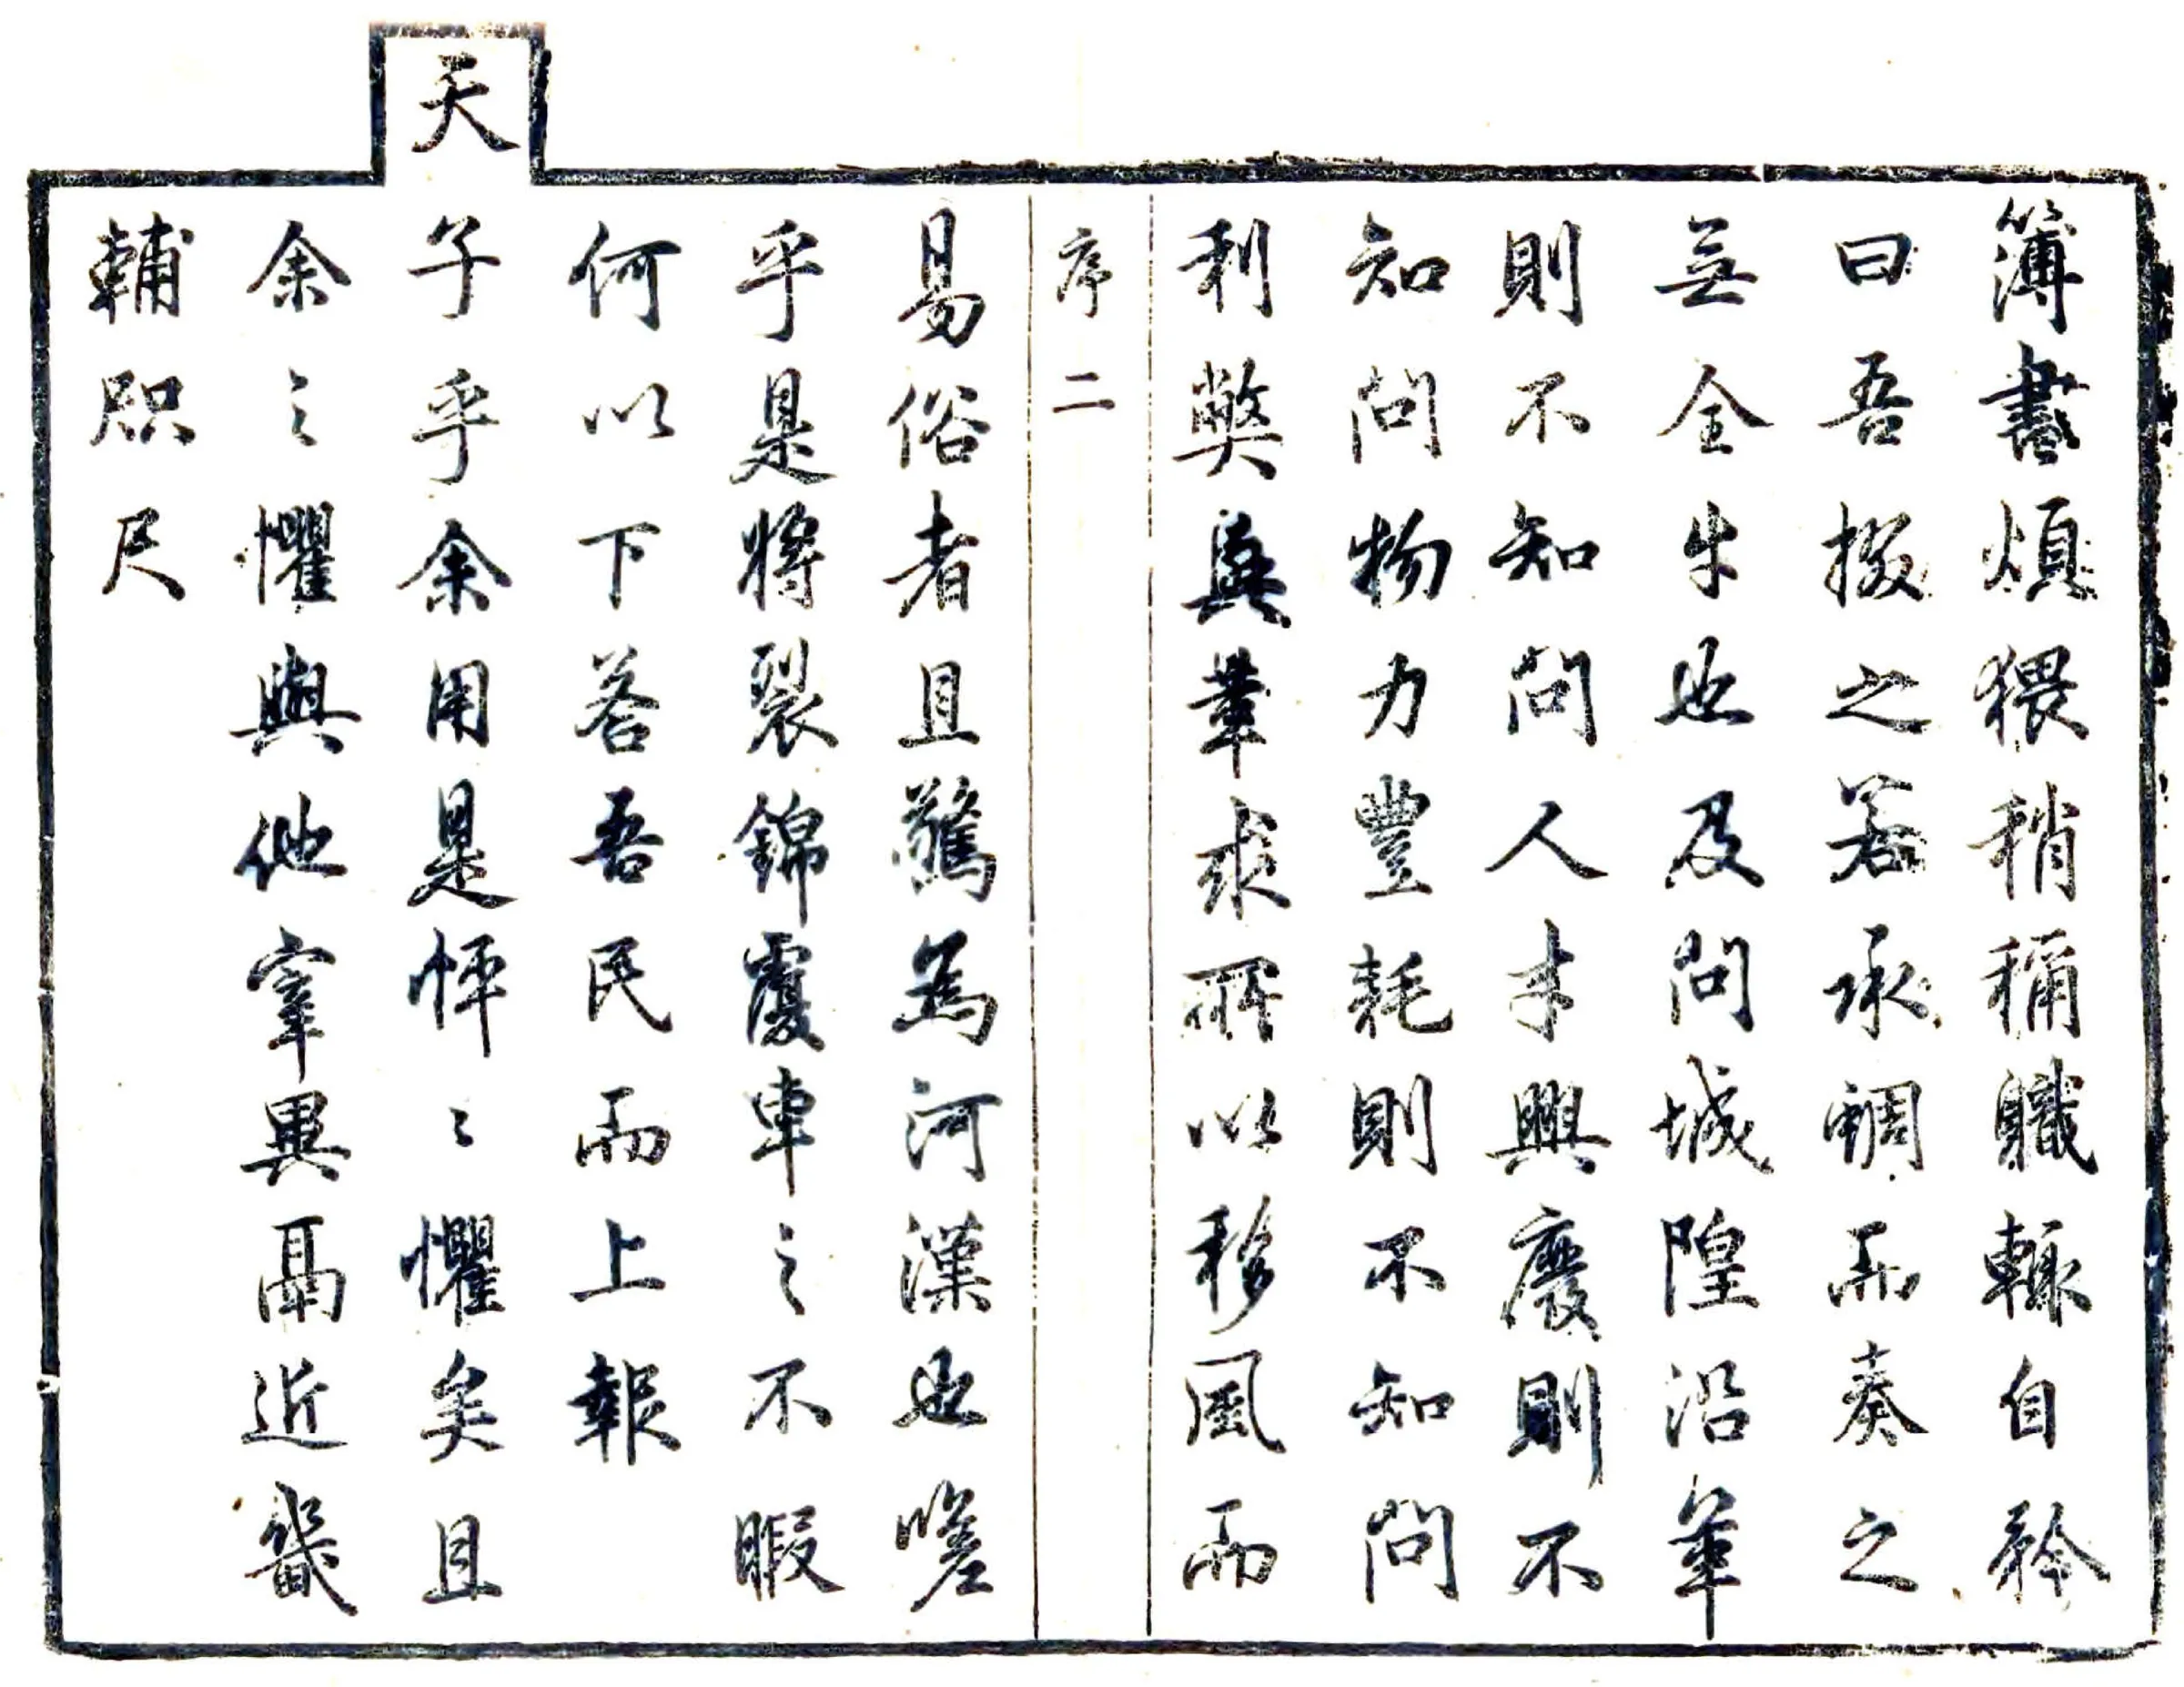 簿書煩猥稍稱職輙自矜
曰吾掇之若承蜩而奏之
無全牛也及問城隍沿革
則不知問人才興廢則不
知問物力豐耗則不知問
利獘與革求所以移風而
序二
易俗者且驚為河漢也嗟
乎是將裂錦覆車之不暇
何以下荅吾民而上報
天
子乎余用是怦〻懼矣且
余之懼與他宰異蓋近畿
輔咫尺